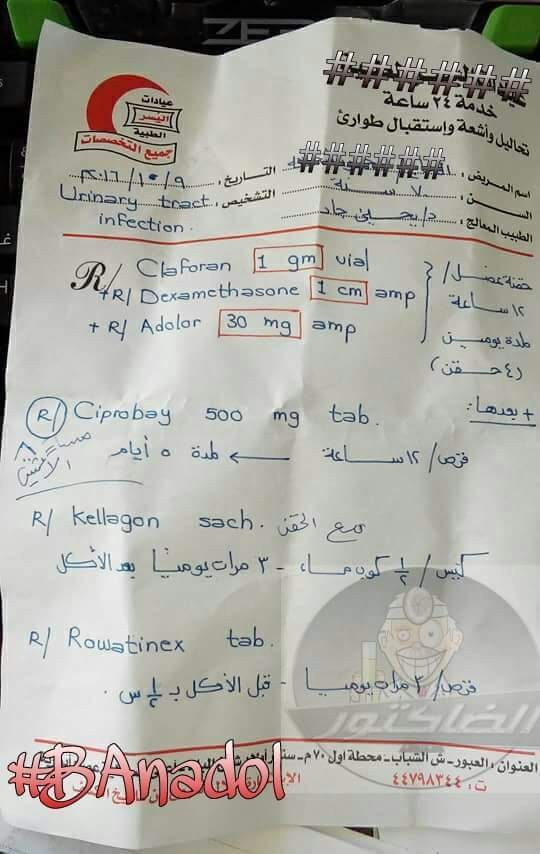 عيادات
اليسر
الطبية
جميع التخصصات
خدمة ٢٤ ساعة
تحاليل وأشعة وإستقبال طوارئ
اسم المريض: ###### التاريخ: ٢٠١٦/١٠/٩
السن: ٧٠ سنة
التشخيص: Urinary tract infection.
الطبيب المعالج: د/
R/ Claforan 1 gm vial
+R/ Dexamethasone 1 cm amp
+ R/ Adolor 30 mg amp
حقنة عضل /
١٢ ساعة
لمدة يومين
(٤ حقن)
+ بعدها:
R/ Ciprobay 500 mg tab.
قرص / ١٢ ساعة ← لمدة ٥ أيام
مساء
الاثنين
R/ Kellagon sach. مع الحقن
كيس / ½ كوب ماء - ٣ مرات يومياً بعد الأكل
R/ Rowatinex tab.
قرص / ٣ مرات يومياً - قبل الأكل بـ ½ س.
الفاكتور
العنوان: العبور - ش الشباب - محطة اول ٧٠م -
ت: ٤٤٧٩٨٣٤٤
#BAnadol